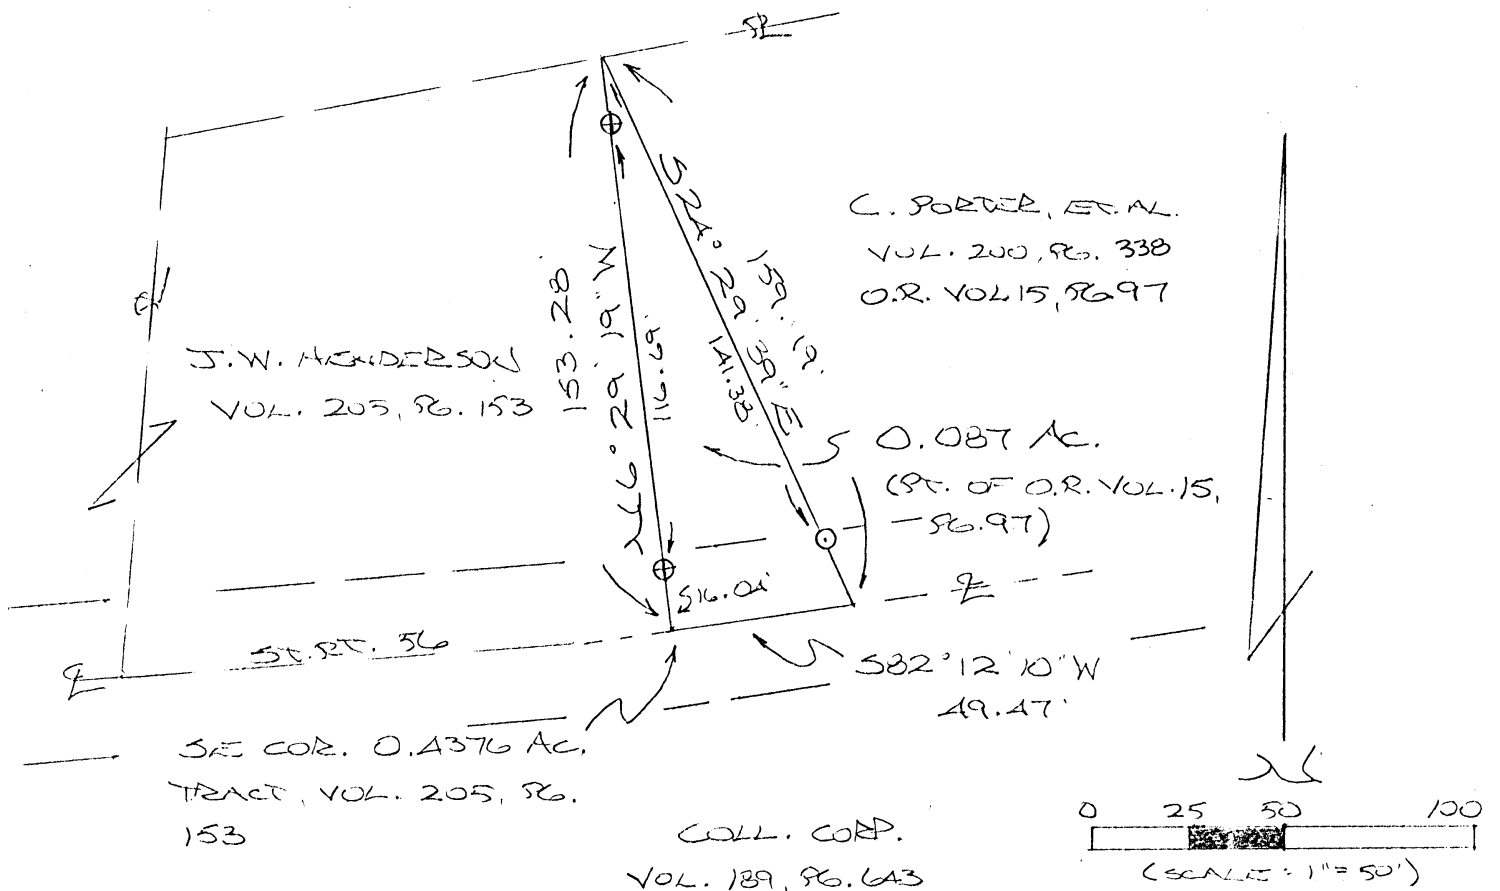 PL
C. PORTER, ET. AL.
VOL. 200, PG. 338
O.R. VOL 15, PG 97
J.W. HENDERSON
VOL. 205, PG. 153
153.28'
N 6° 29' 19" W
116.69'
S 24° 29' 39" E
159.19'
141.38'
0.087 AC.
(PT. OF O.R. VOL. 15,
PG. 97)
16.04'
ST. RT. 56
S 82° 12' 10" W
49.47'
SE COR. 0.4376 AC.
TRACT, VOL. 205, PG.
153
COLL. CORP.
VOL. 189, PG. 643
N
0 25 50 100
(SCALE: 1" = 50')